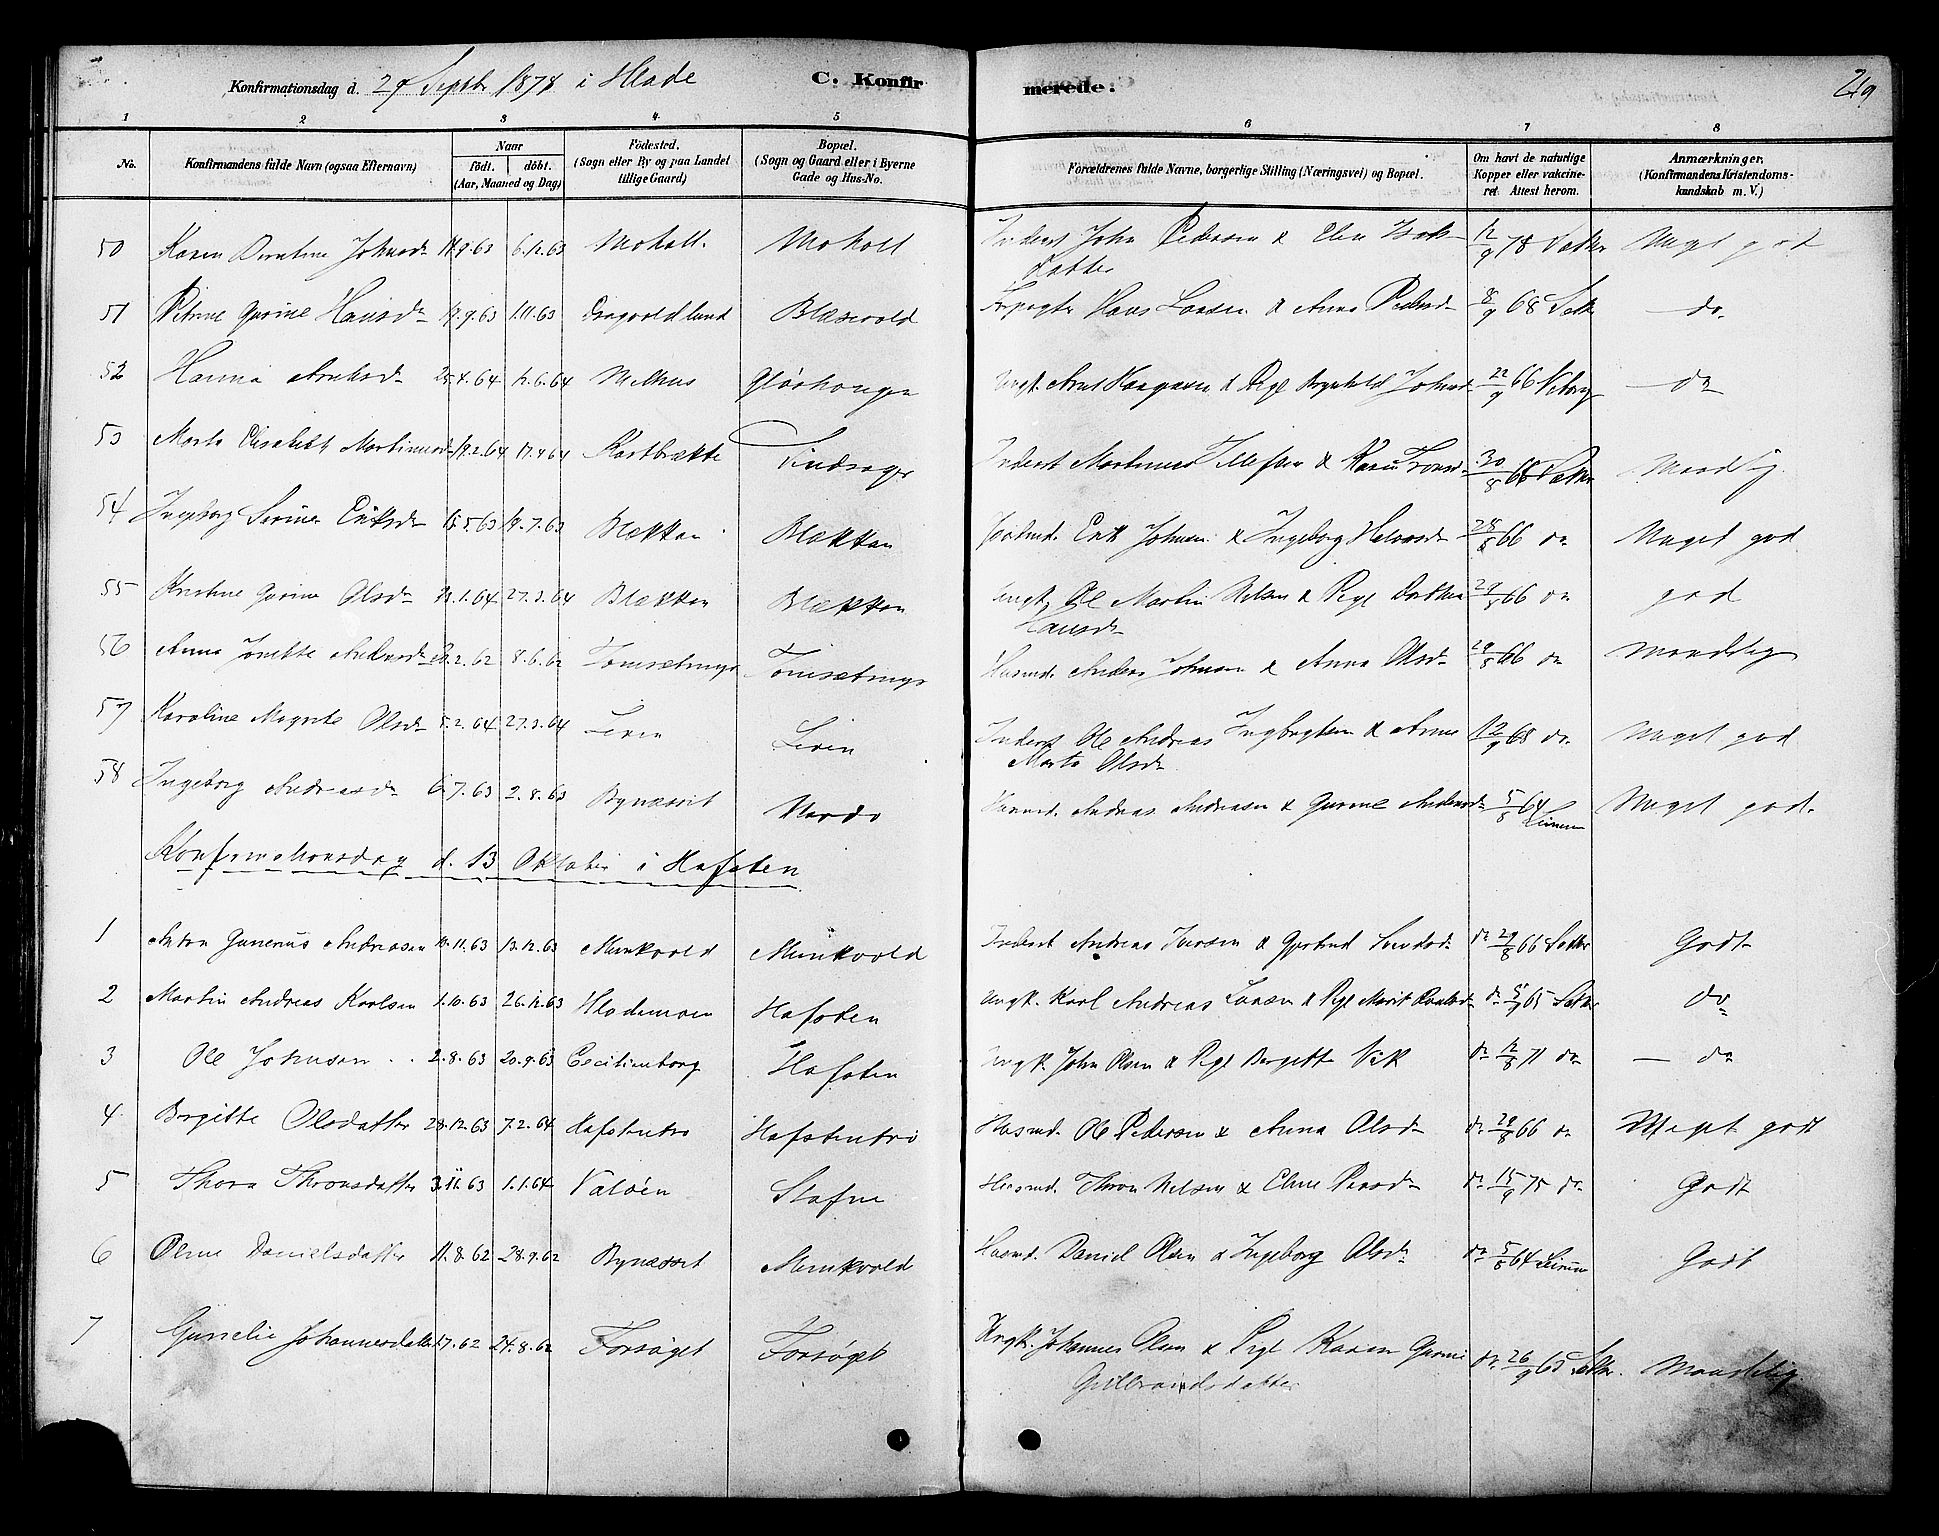 Konfirmationsdag d. 29 Septbr 1878 i Hlade C. Konfirmerede. 219
1 2 3 4 5 6 7 8
No. Konfirmandens fulde Navn (ogsaa Efternavn) Naar født. døbt. (Aar, Maaned og Dag) Fødested. (Sogn eller By og paa Landet tillige Gaard) Bopæl. (Sogn og Gaard eller i Byerne Gade og Hus-No. Forældrenes fulde Navne, borgerlige Stilling (Næringsvei) og Bopæl. Om havt de naturlige Kopper eller vakcineret. Attest herom. Anmærkninger. (Konfirmandens Kristendomskundskab m. V.)
50 Karen Johnsd 6.12.63 Moholt Moholt Inderst John Pedersen & Elen Isaks 12/9 78 Sakr Meget god
datter
51 Petrine Gurine Hansd 1.11.63 Dragvoldlund Blæsevold Forpagter Hans Larsen & Anna Pedersd 8/9 68 Sakr do
52 Hanna Arntsd 25.4.64 12.6.64 Melhus Gløshaugen Ungk. Arnt Haagensen & Pige Johnsd 22/9 66 do
53 Marta Elisabeth Martinusd 19.2.64 17.4.64 Kastbrække Tindsager Inderst Martinus Tellefsen & Karen 30/8 66 Sakr Maadelig
54 Ingeborg Serine Eriksd 19.7.63 Blekkan Blekkan Erik Johnsen & Ingeborg Halvorsd 28/8 66 do Meget god
55 Kristine Gurine Olsd 27.3.64 Blekkan Blekkan Ungk. Ole Martin Nilsen & Pige Dorthea 29/8 66 do god
Hansd
56 Anna Jonette Andersd 8.6.62 Tomsætringe Tomsætringe Husmd. Anders Johnsen & Anna Olsd 29/8 66 do Maadelig
57 Karoline Magrete Olsd 5.2.64 27.3.64 Leren Leren Inderst Ole Andreas Ingbrigtsen & Anne 12/9 68 do Meget god
Marta Olsd
58 Ingeborg Andreasd 6.7.63 2.8.63 Bynæsset Husmd. Andreas Andreasen & Gurine Andersd 5/8 64 Meget god
Konfirmationsdag d. 13 Oktober i Hafsten
1 Anton Gunerius Andreasen 13.12.63 Munkvold Munkvold Inderst Andreas Iversen & Gjertrud Svendsd do 29/8 66 Sakr Godt
2 Martin Andreas Karlsen 1.10.63 26.12.63 Hlademoen Hafsten Ungk. Karl Andreas Larsen & Pige Marit do 65 Sakr do
3 Ole Johnsen 2.8.63 20.9.63 Cecilienborg Hafsten Ungk. John Olsen & Pige Bergitte Vik do 12/8 71 do do
4 Bergitte Olsdatter 28.12.63 7.2.64 Hafstentrø Hafstentrø Husmd. Ole Pedersen & Anna Olsd do 29/8 66 do Meget godt
5 Thora Thronsdatter 3.11.63 1.1.64 Valøen Stafne Husmd. Thron Nilsen & Eline do 15/9 75 do Godt
6 Oline Danielsdatter 11.8.62 28.9.62 Bynæsset Munkvold Husmd. Daniel Olsen & Ingeborg Olsd do 5/8 64 Godt
7 Gunelie Johannesdatter 24.8.62 Forsøget Forsøget Ungk. Johannes Olsen & Pige Karen Gurine do 26/9 65 Sakr. Maadelig
Gulbrandsdatter